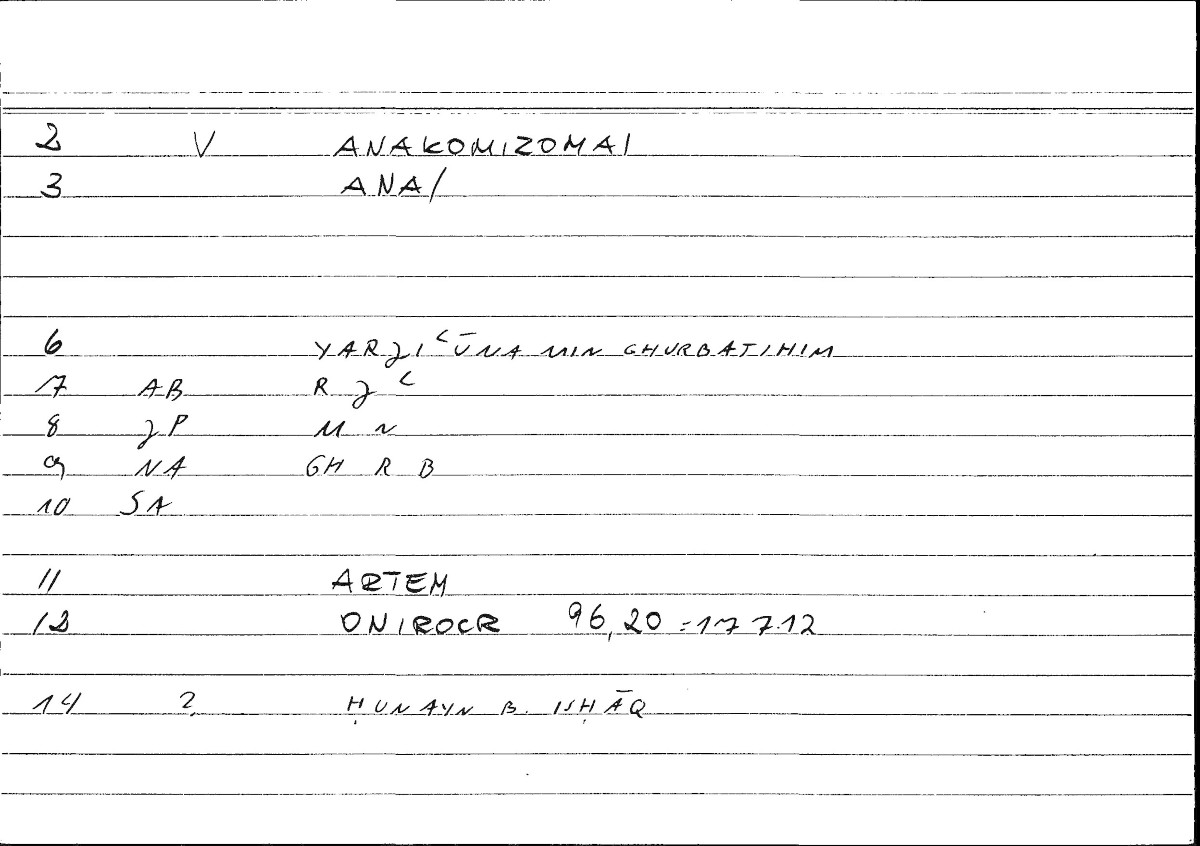 2 V ANAKOMIZOMAI
3 ANA/
6 YARJIʿŪNA MIN GHURBATIHIM
7 AB R J ʿ
8 JP M N
9 NA GH R B
10 SA
11 ARTEM
12 ONIROCR 96,20 = 177.12
14 2 ḤUNAYN B. ISḤĀQ